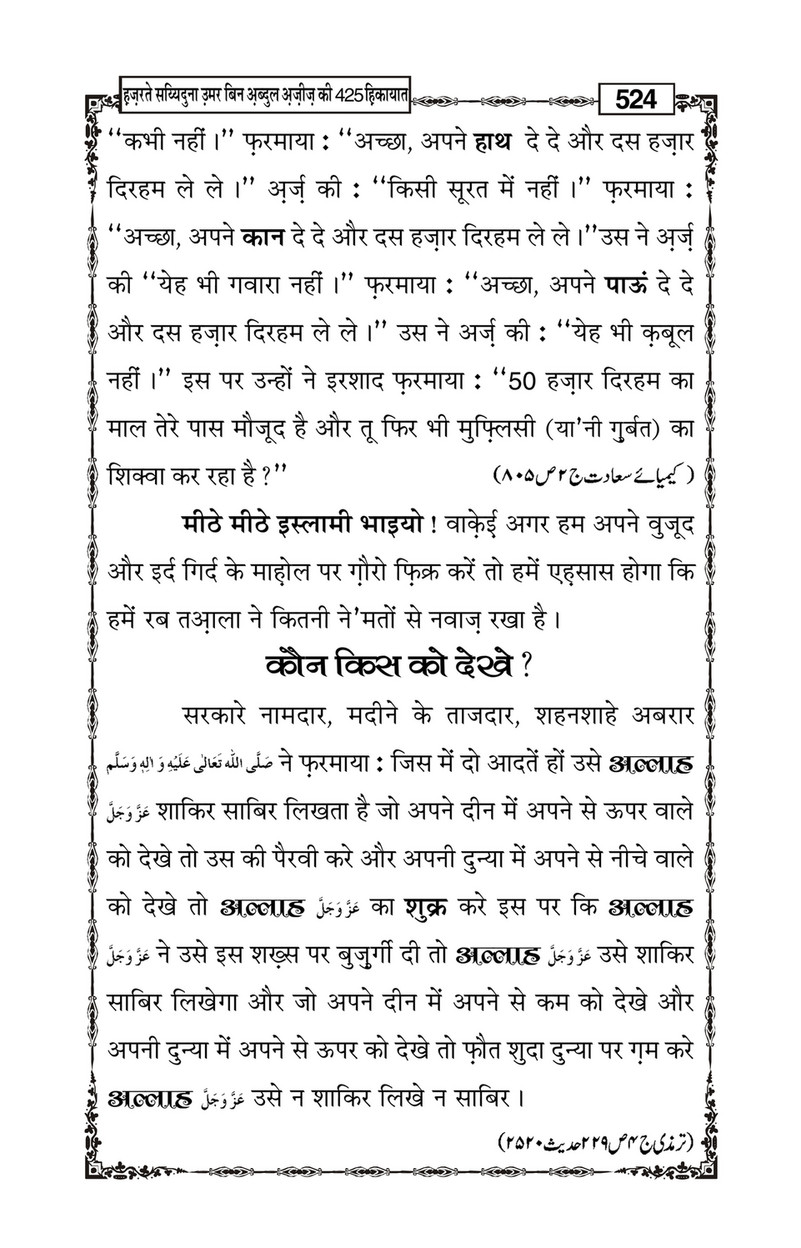 हज़रते सय्यिदुना उ़मर बिन अ़ब्दुल अ़ज़ीज़ की 425 हिकायात
524
‘‘कभी नहीं ।’’ फ़रमाया : ‘‘अच्छा, अपने हाथ दे दे और दस हज़ार
दिरहम ले ले ।’’ अ़र्ज़ की : ‘‘किसी सूरत में नहीं ।’’ फ़रमाया :
‘‘अच्छा, अपने कान दे दे और दस हज़ार दिरहम ले ले ।’’उस ने अ़र्ज़
की ‘‘येह भी गवारा नहीं ।’’ फ़रमाया : ‘‘अच्छा, अपने पाऊं दे दे
और दस हज़ार दिरहम ले ले ।’’ उस ने अर्ज़ की : ‘‘येह भी क़बूल
नहीं ।’’ इस पर उन्हों ने इरशाद फ़रमाया : ‘‘50 हज़ार दिरहम का
माल तेरे पास मौजूद है और तू फिर भी मुफ़्लिसी (या’नी गुर्बत) का
शिक्वा कर रहा है ?’’ (کیمیائے سعادت ج۲ ص۸۰۵)
मीठे मीठे इस्लामी भाइयो ! वाके़ई अगर हम अपने वुजूद
और इर्द गिर्द के माह़ोल पर ग़ौरो फ़िक्र करें तो हमें एह़सास होगा कि
हमें रब तआ़ला ने कितनी ने’मतों से नवाज़ रखा है ।
कौन किस को देखे ?
सरकारे नामदार, मदीने के ताजदार, शहनशाहे अबरार
صَلَّى اللّٰهُ تَعَالٰى عَلَيْهِ وَاٰلِهٖ وَسَلَّم ने फ़रमाया : जिस में दो आदतें हों उसे अल्लाह
عَزَّوَجَلَّ शाकिर साबिर लिखता है जो अपने दीन में अपने से ऊपर वाले
को देखे तो उस की पैरवी करे और अपनी दुन्या में अपने से नीचे वाले
को देखे तो अल्लाह عَزَّوَجَلَّ का शुक्र करे इस पर कि अल्लाह
عَزَّوَجَلَّ ने उसे इस शख़्स पर बुज़ुर्गी दी तो अल्लाह عَزَّوَجَلَّ उसे शाकिर
साबिर लिखेगा और जो अपने दीन में अपने से कम को देखे और
अपनी दुन्या में अपने से ऊपर को देखे तो फ़ौत शुदा दुन्या पर ग़म करे
अल्लाह عَزَّوَجَلَّ उसे न शाकिर लिखे न साबिर ।
(ترمذی ج۴ ص۲۲۹ حدیث ۲۵۲۰)